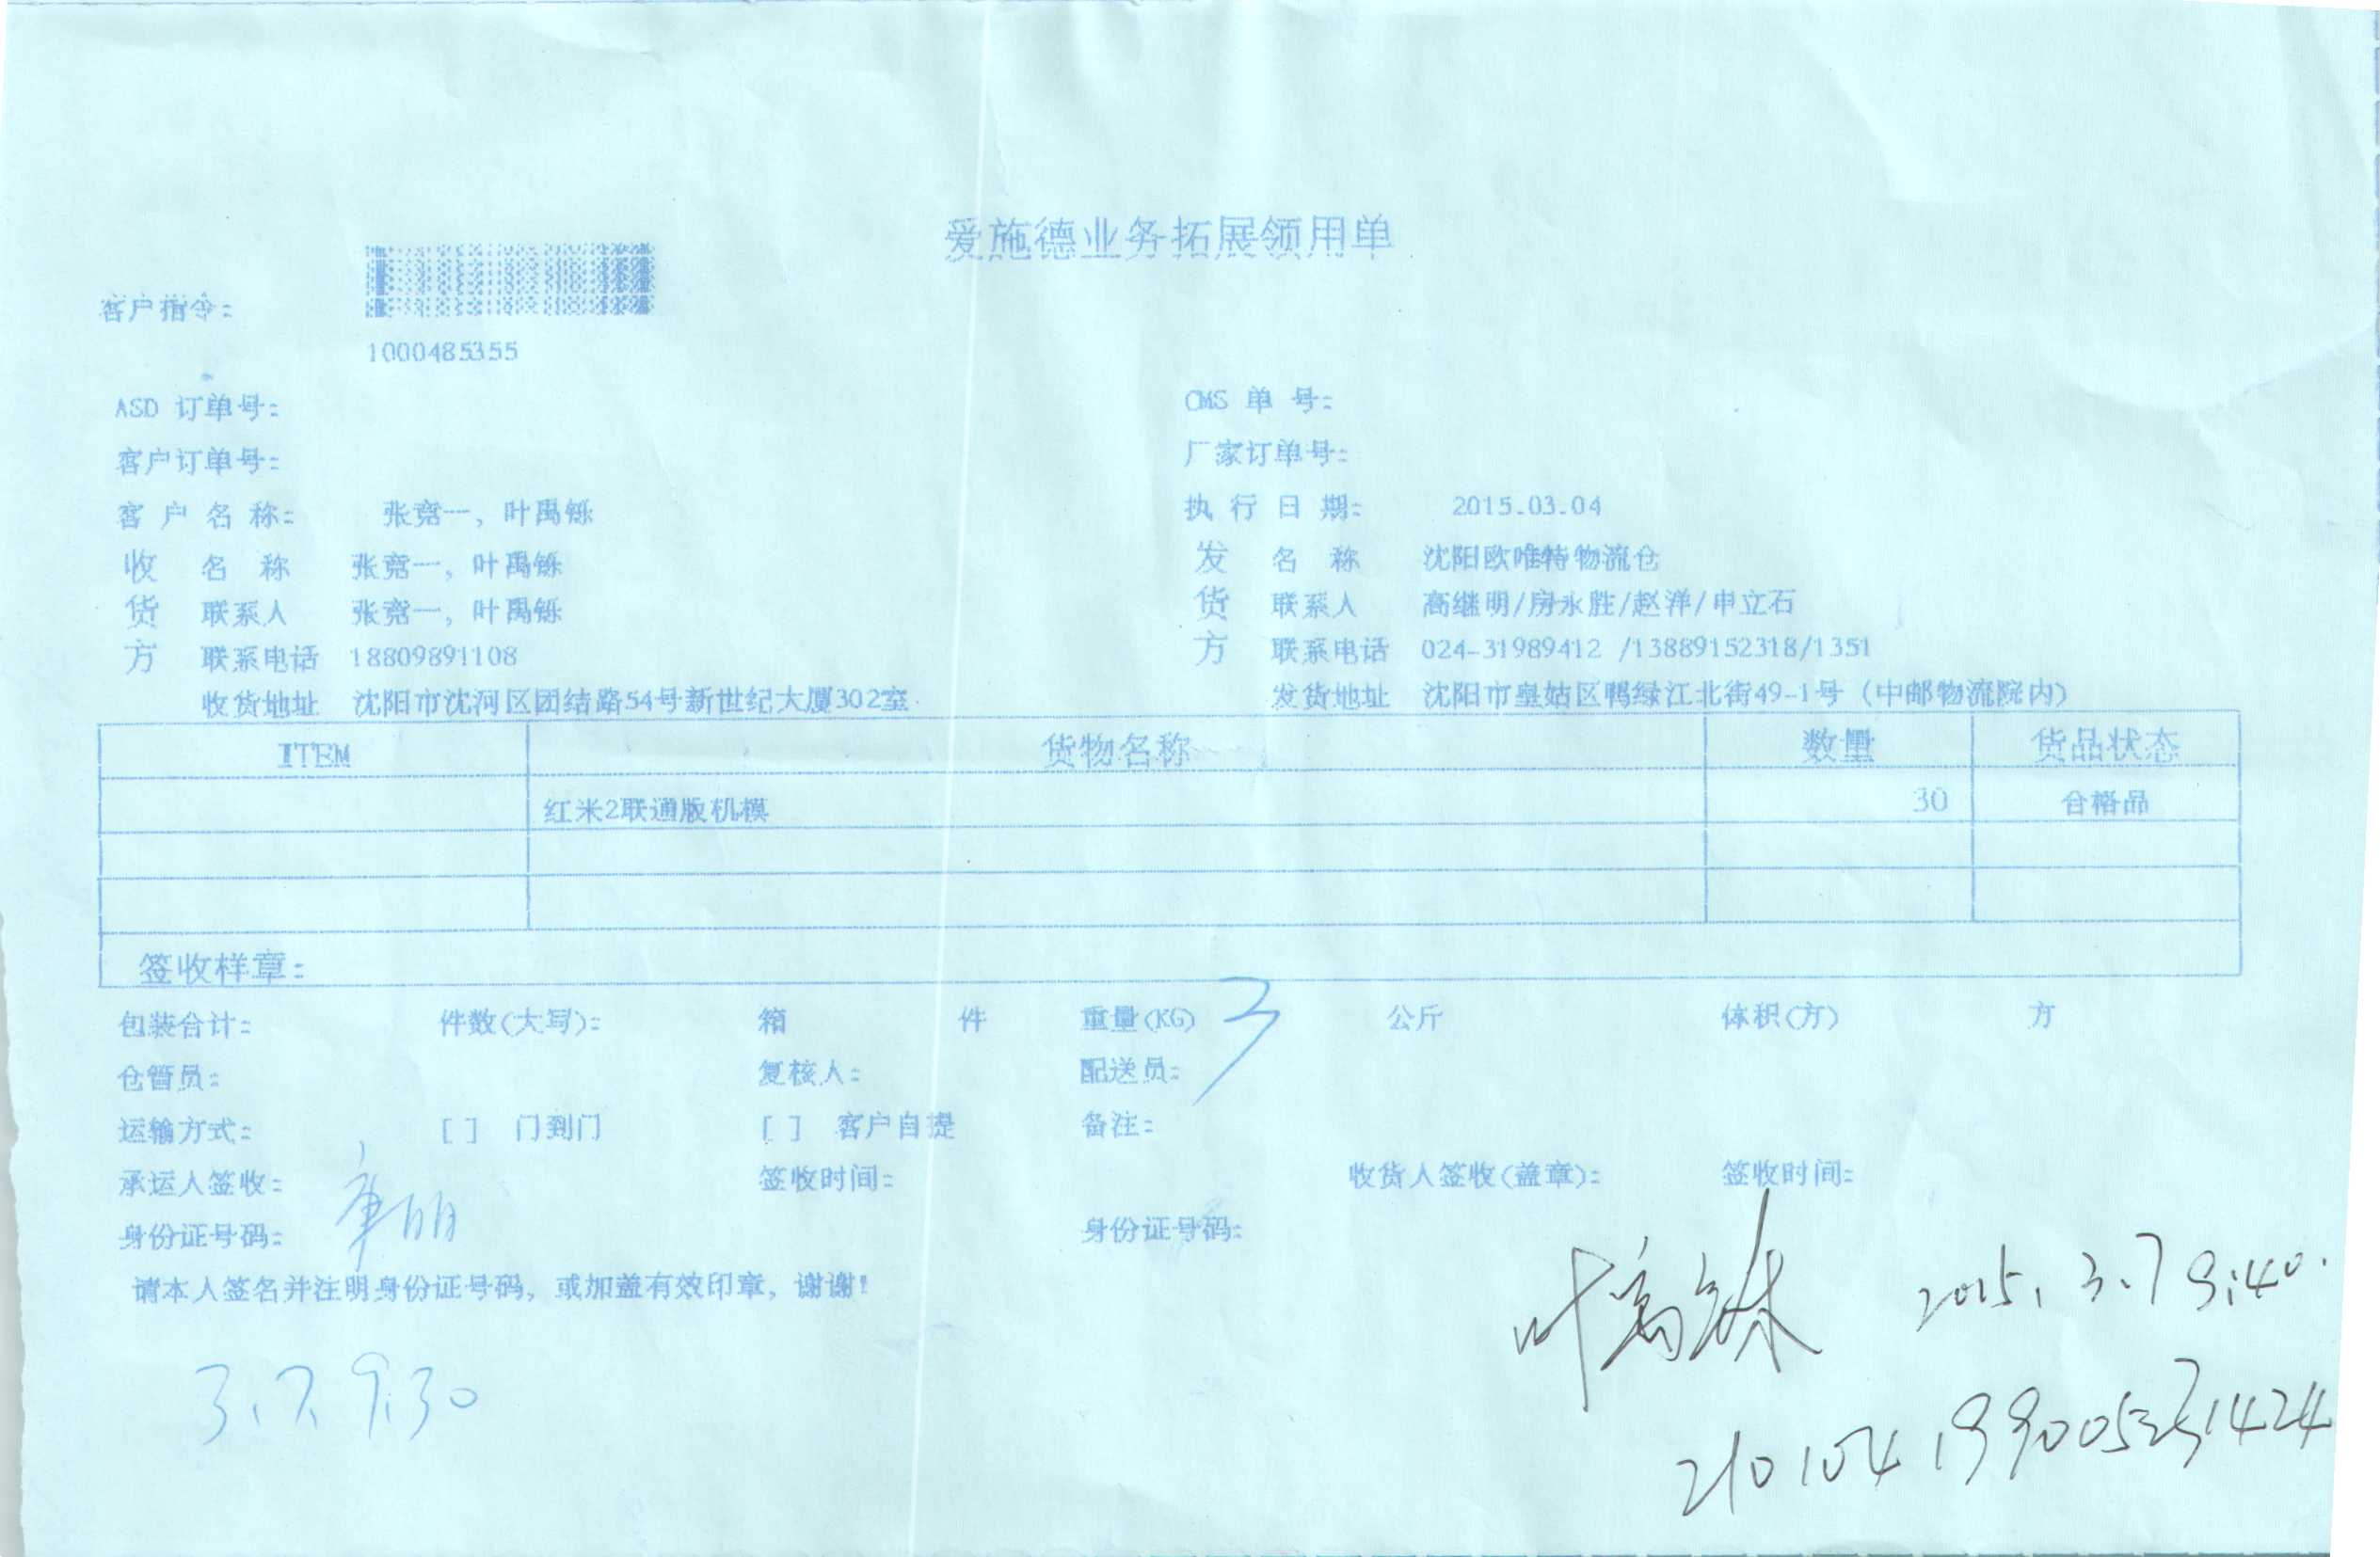 爱施德业务拓展领用单
客户指令:
1000485355
ASD 订单号: CMS 单 号:
客户订单号: 厂家订单号:
客 户 名 称: 张竞一, 叶禹铄 执 行 日 期: 2015.03.04
收 名 称 张竞一, 叶禹铄 发 名 称 沈阳欧唯特物流仓
货 联系人 张竞一, 叶禹铄 货 联系人 高继明/房永胜/赵洋/申立石
方 联系电话 18809891108 方 联系电话 024-31989412 /13889152318/1351
收货地址 沈阳市沈河区团结路54号新世纪大厦302室 发货地址 沈阳市皇姑区鸭绿江北街49-1号 (中邮物流院内)
ITEM 货物名称 数量 货品状态
红米2联通版机模 30 合格品
签收样章:
包装合计: 件数(大写): 箱 件 重量(KG) 3 公斤 体积(方) 方
仓管员: 复核人: 配送员:
运输方式: [ ] 门到门 [ ] 客户自提 备注:
承运人签收: 签收时间: 收货人签收(盖章): 签收时间:
身份证号码: 身份证号码:
叶禹铄 2015.3.7 9:40.
请本人签名并注明身份证号码, 或加盖有效印章, 谢谢!
3.7. 9:30